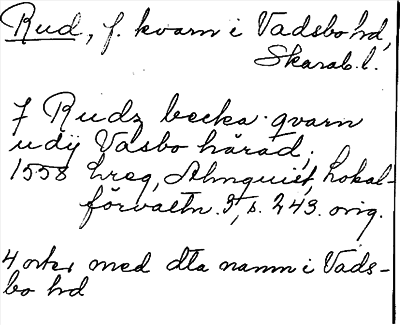 Rud, f. kvarn i Vadsbo hd,
Skarab. l.
7 Rudz becka qvarn
udÿ Vasbo härad;
1558 hreg, Almquist, Lokal-
förvaltn. I, s. 243. orig.
4 orter med dta namn i Vads-
bo hd